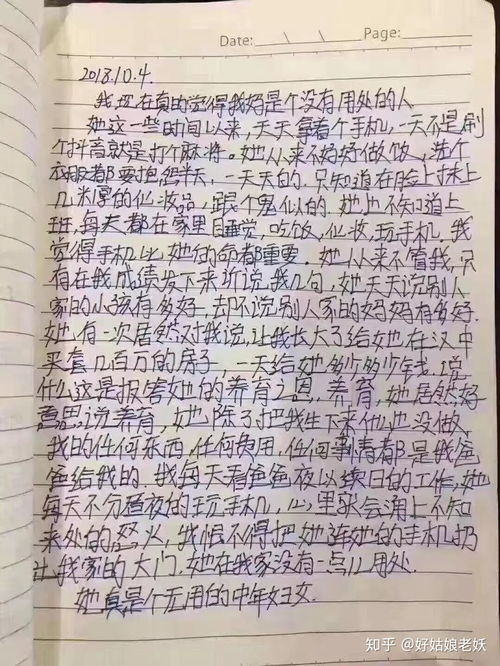 Date: \ \ Page:
2018.10.4.
我现在真的觉得我妈是个没有用处的人
她这一些时间以来,天天拿着个手机,一天不是刷
个抖音就是打个麻将。她从来不好好做饭,洗个
衣服都要抱怨半天,一天天的.只知道在脸上抹上
几米厚的化妆品,跟个鬼似的.她也不知道上
班,每天都在家里睡觉,吃饭,化妆,玩手机.我
觉得手机比她的命都重要。她从来不管我,只
有在我成绩发下来所说我几句,她天天说别人
家的小孩有多好,却不说别人家的妈妈有多好.
她有一次居然对我说,让我长大了给她在汉中
买套几百万的房子,一天给她多少多少钱.说
什么这是报答她的养育之恩,养育,她居然好
意思说养育,她除了把我生下来什么也没做,
我的任何东西,任何费用,任何事情都是我爸
爸给我的.我每天看爸爸夜以续日的工作,她
每天不分昼夜的玩手机,心里就会涌上不知
来处的怒火,我恨不得把她连她的手机扔
出我家的大门.她在我家没有一点儿用处.
她真是个无用的中年妇女.
知乎 @好姑娘老妖